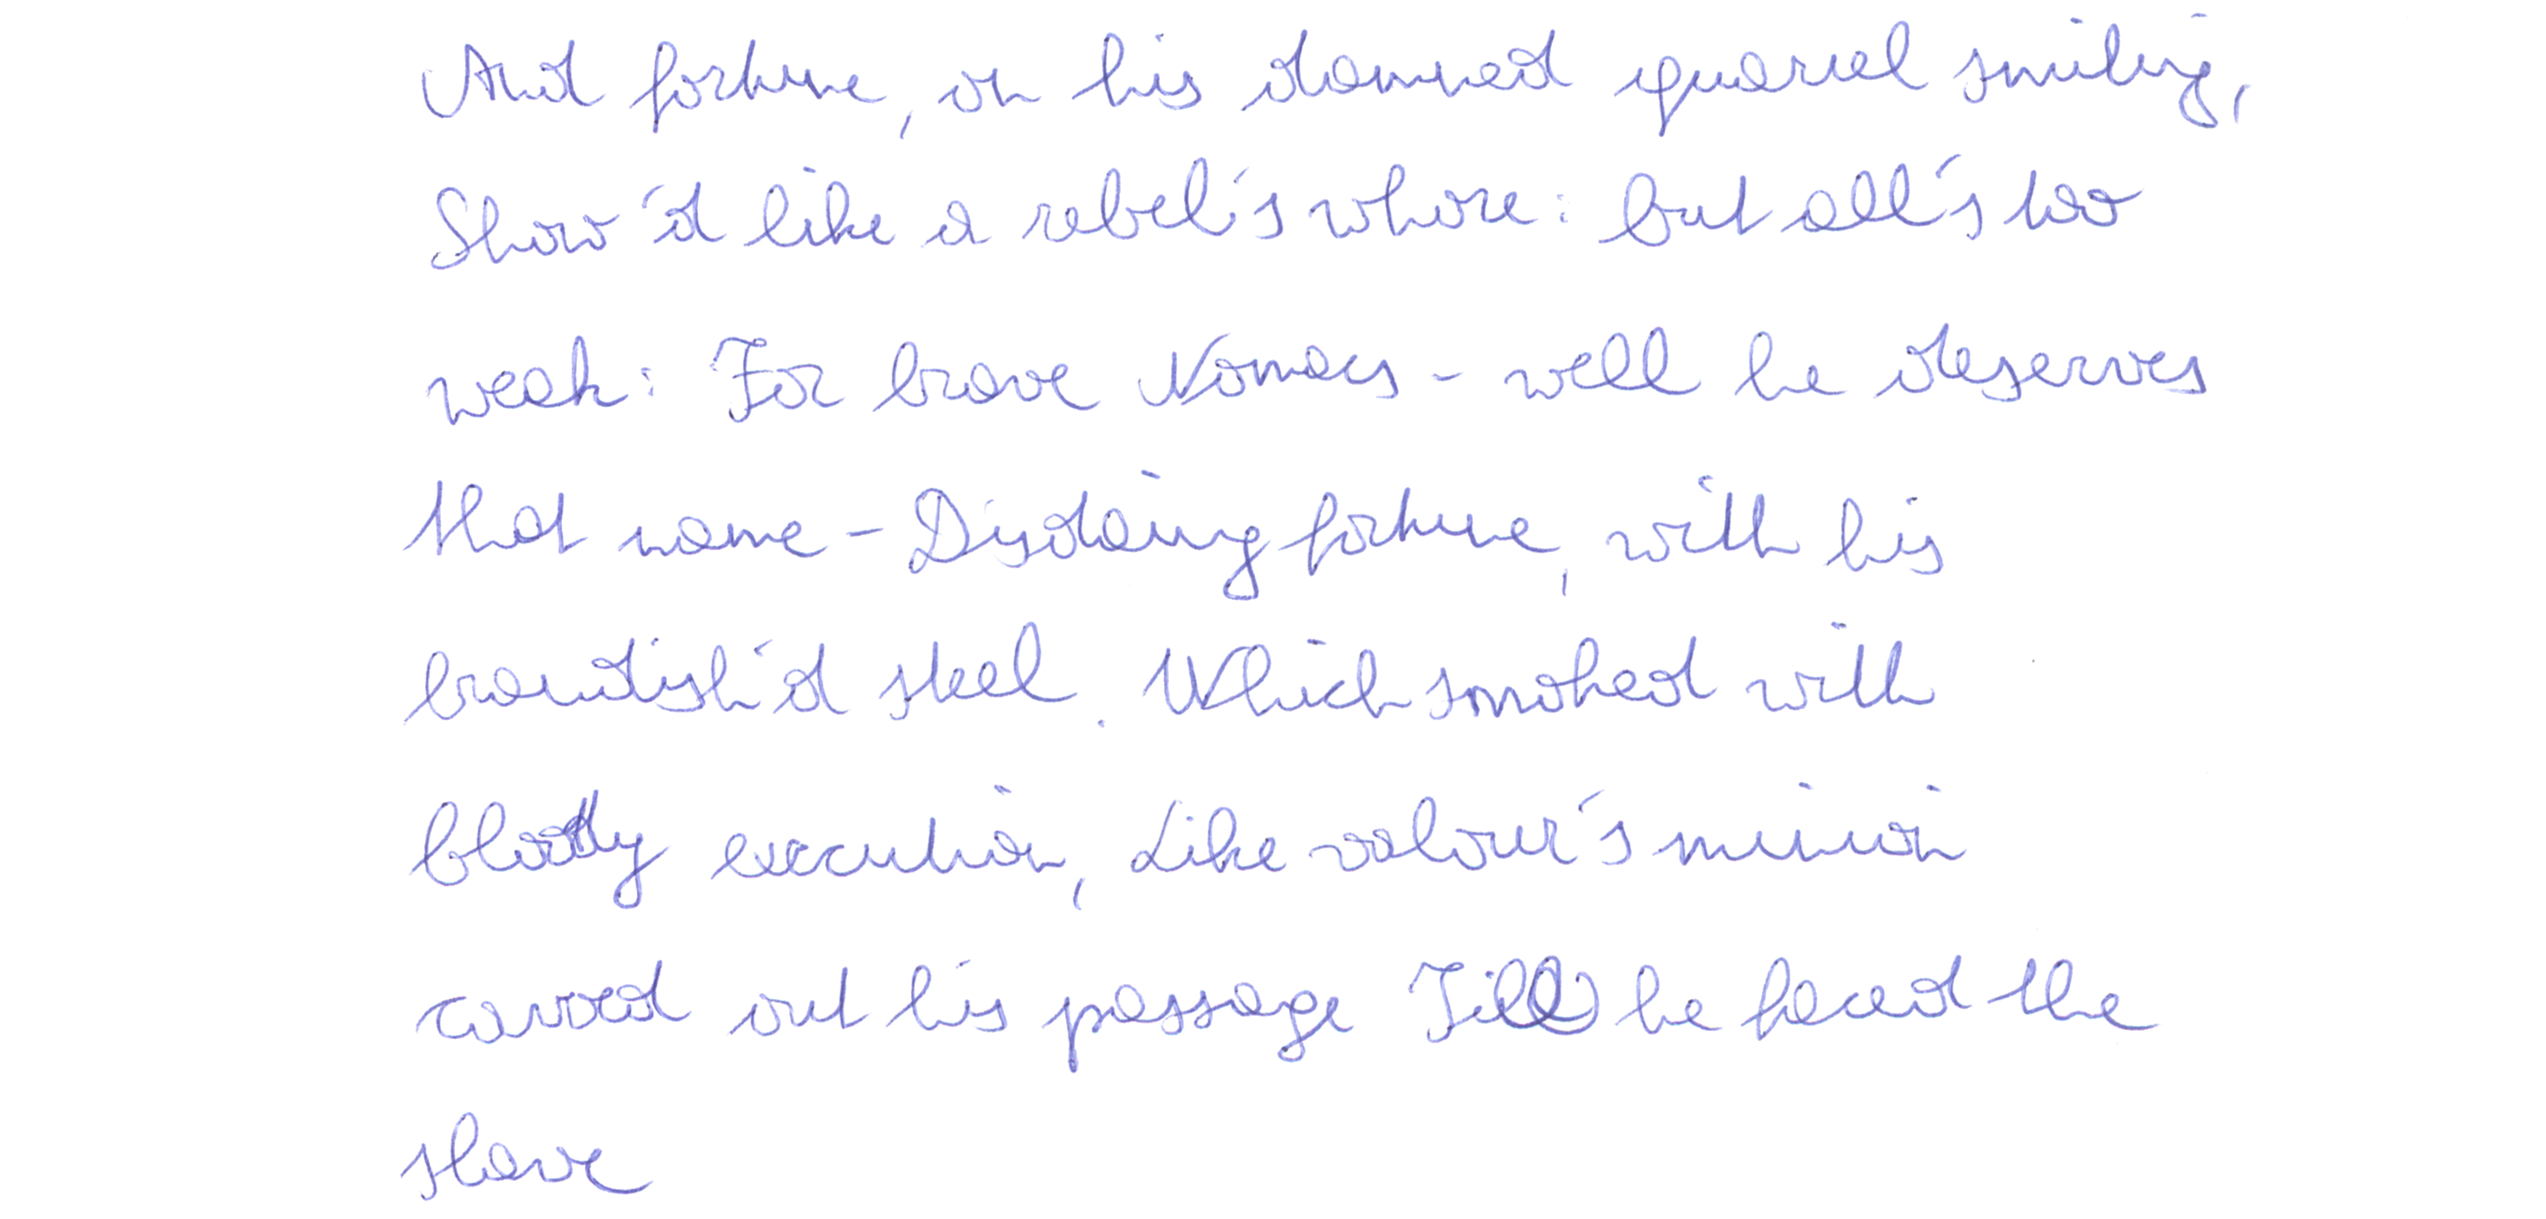 And fortune, on his damned quarrel smiling,
Show'd like a rebel's whore: but all's too
weak: For brave Nomacs - well he deserves
that name - Disdaing fortune, with his
brandish'd steel. Which smoked with
bloody execution, Like valour's minion
carved out his passage Till he faced the
slave